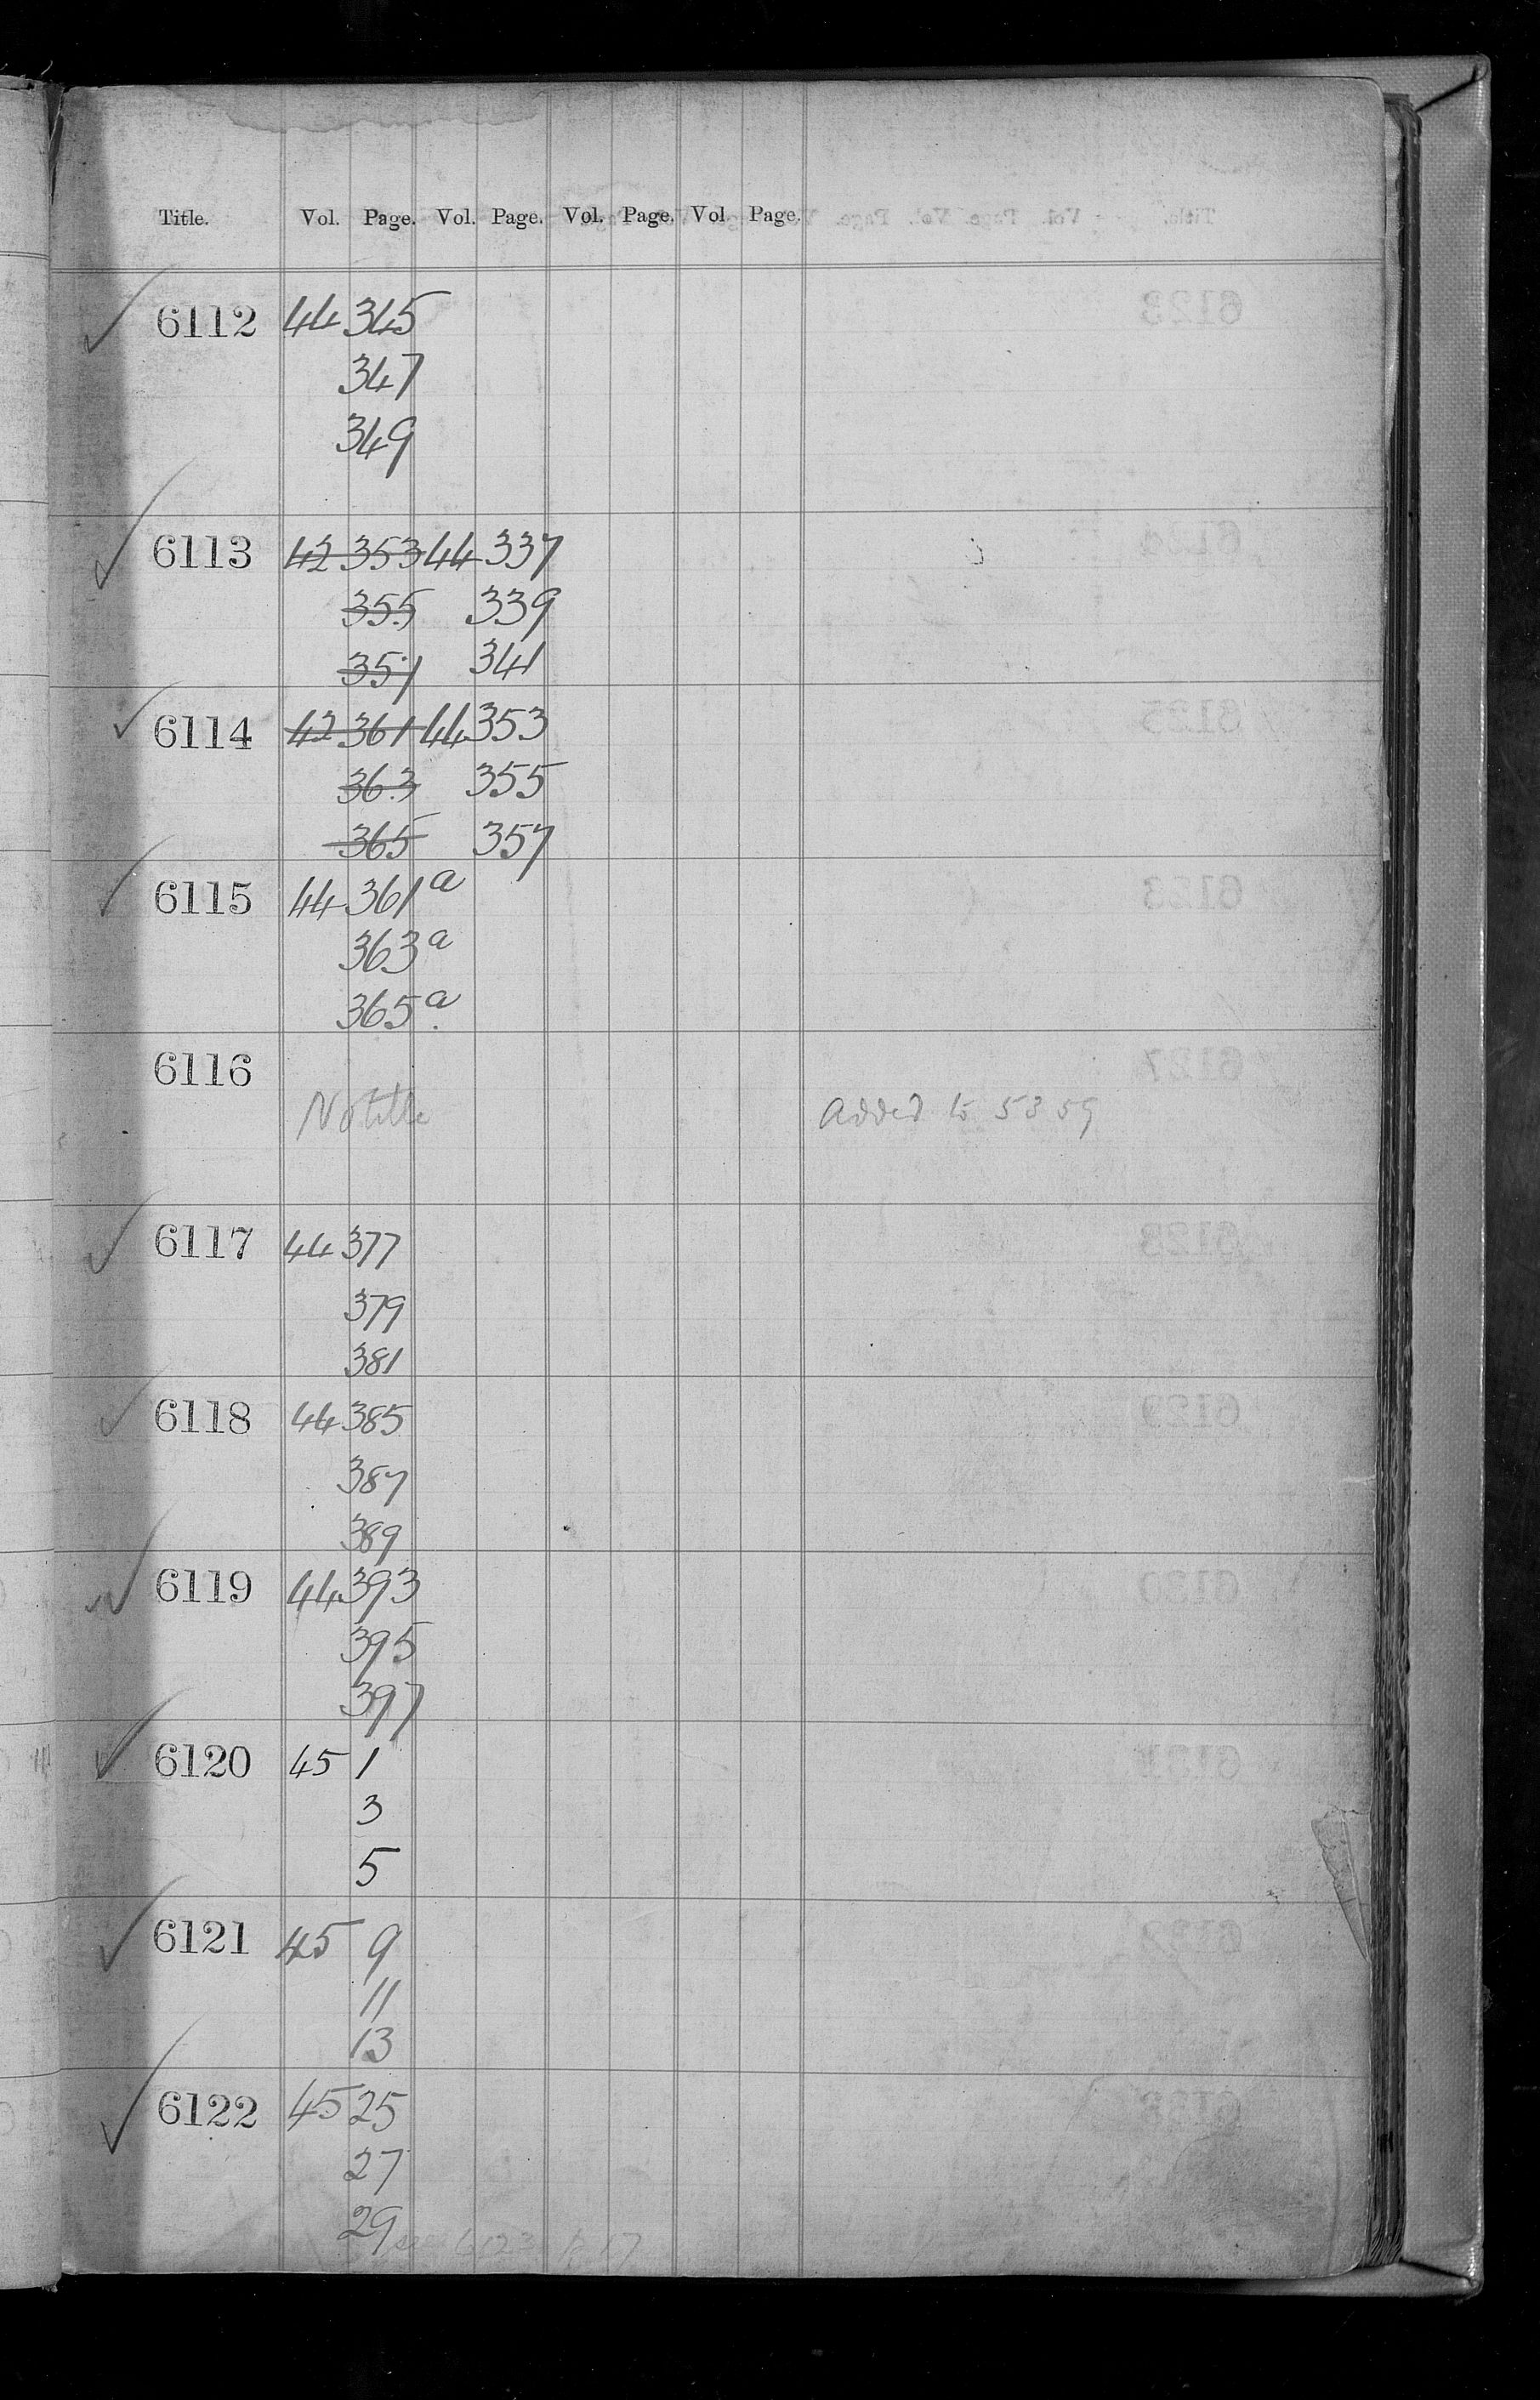 Title. Vol. Page. Vol. Page. Vol. Page. Vol Page.
6112 44 345
347
349
6113 42 353 44 337
355 339
357 341
6114 42 361 44 353
363 355
365 357
6115 44 361a
363a
365a.
6116
No title Added to 5359
6117 44 377
379
381
6118 44 385
387
389
6119 44 393
395
397
6120 45 1
3
5
6121 45 9
11
13
6122 45 25
27
29
see 6123 p. 17